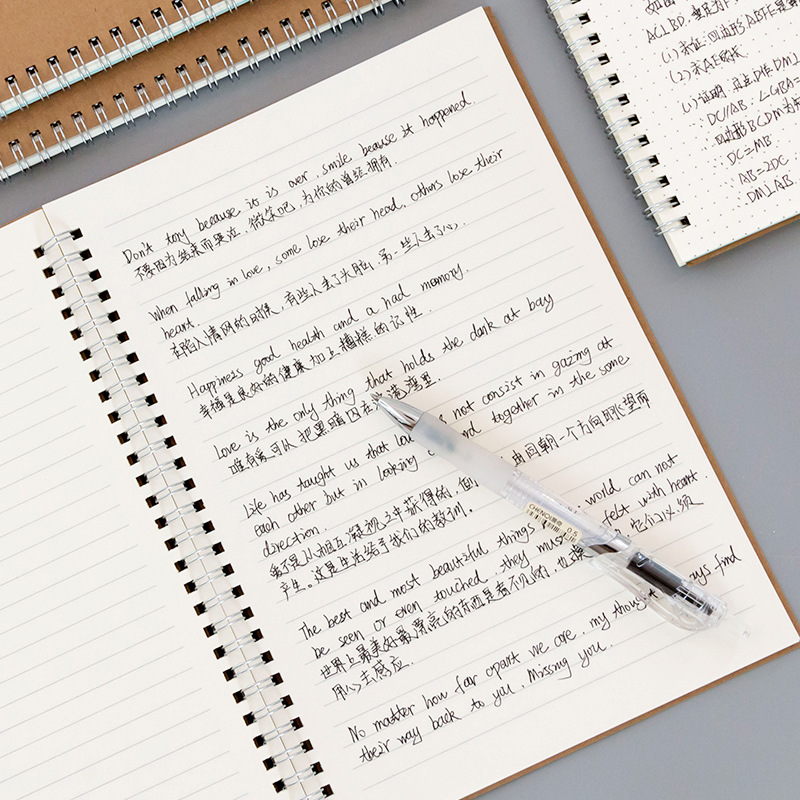 Don't because it is over, smile beause it happened.
不要因为结束而哭泣,微笑吧,为你的曾经拥有.
When falling in love, some lose their head, others lose their
heart.
在陷入情网的时候,有些人丢了头脑,另一些人丢了心.
Happiness good health and a had memory.
幸福是良好的健康加上糟糕的记性.
Love is the only thing that holds the dank at bay
唯有爱可以把黑暗囚在港湾里.
Life has taught us that not consist in gazing at
each other but in looking together in the some
direction.
爱不是从相互凝视之中获得的,但 由同朝一个方向眺望而
产生。这是生活给予我们的教训。
The best and most beautiful things world can not
be seen or even touched, they must felt with heart.
世界上最美好最漂亮的东西是看不见的,也 它们必须
用心去感应.
No matter how far apart we are, my thought find
their way back to you, Missing you.
如图
AC⊥BD,垂足为
(1)求证:四边形ABFE是
(2)求AE的长
(1)证明:过点D作DM⊥
DC//AB,∠CBA=
四边形BCDM为
DC=MB
AB=2DC
DM⊥AB
CHENQI 0.5